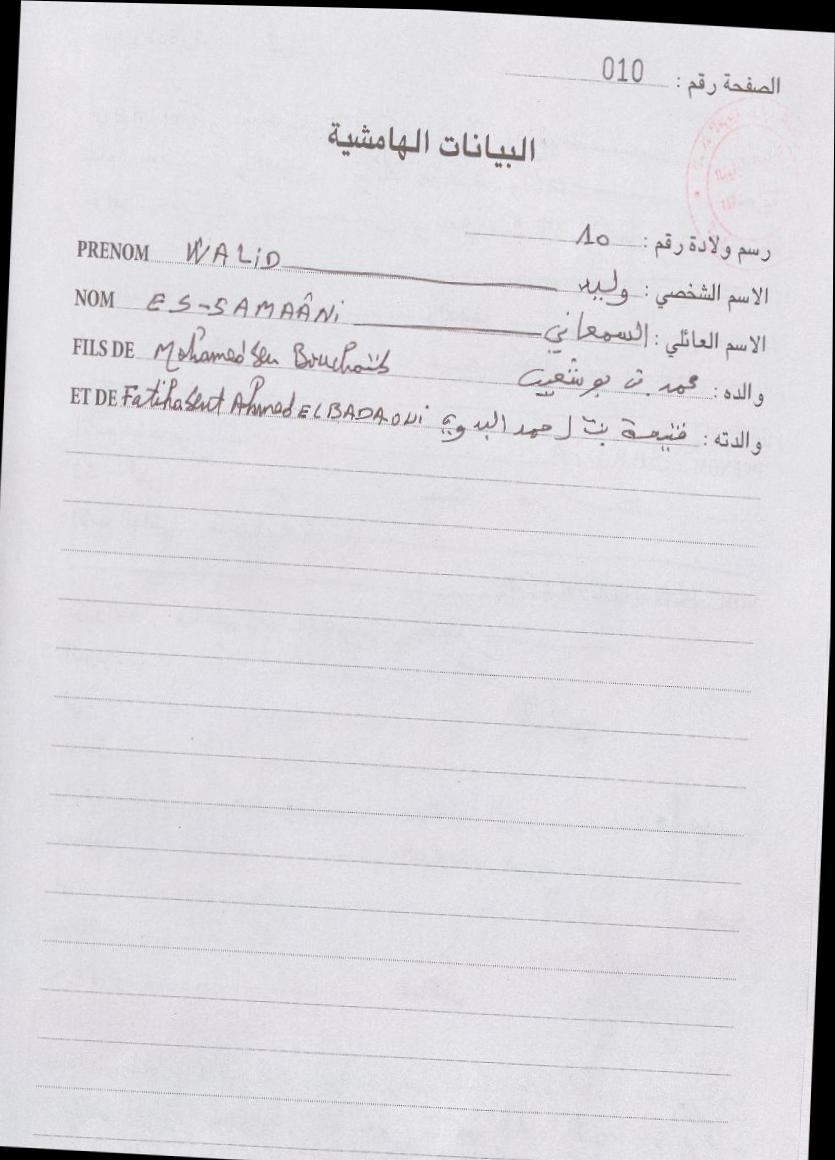 الصفحة رقم : 010
البيانات الهامشية
رسم ولادة رقم : 10
PRENOM WALiD الاسم الشخصي : وليد
NOM ES-SAMAÂNi الاسم العائلي : السمعاني
FILS DE Mohamed ben Bouchaïb والده : محمد بن بوشعيب
ET DE Fatiha bent Ahmed EL BADAOUi والدته : فتيحة بنت احمد البدوي